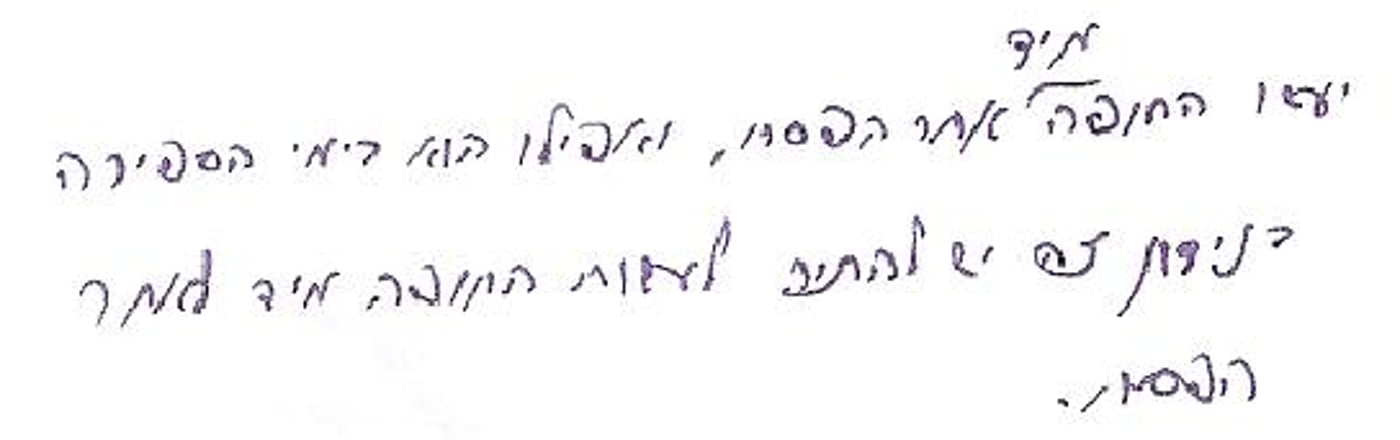 מיד
יעשו החופה אחר הפסח, ואפילו הוא בימי הספירה
בנידון זה יש להתיר לעשות החופה מיד לאחר
הפסח.